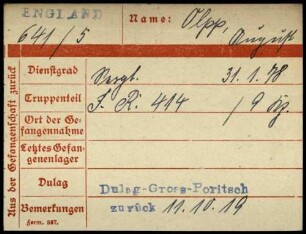 ENGLAND Name: Olpp,
641/5 August
Aus der Gefangenschaft zurück
Dienstgrad Sergt. 31.1.78
Truppenteil I. R. 414 / 9 Kp.
Ort der Ge-
fangennahme
Letztes Gefan-
genenlager
Dulag Dulag-Gross-Poritsch
Bemerkungen zurück 11.10.19
Form. 587.